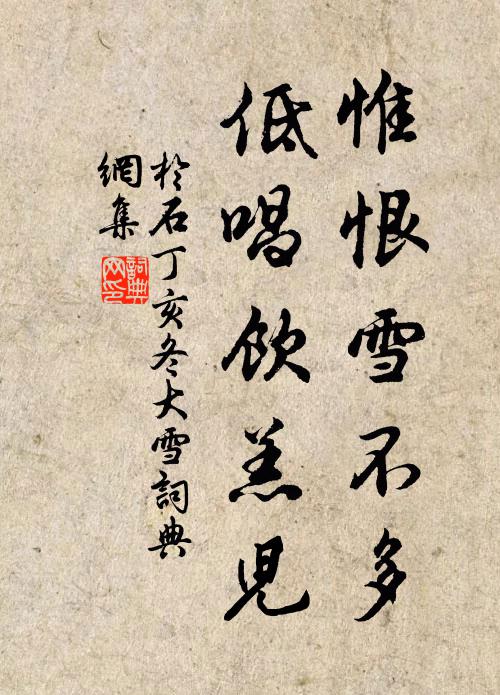 惟恨雪不多
低唱飲羔兒
於石丁亥冬大雪詞典
網集
詞典
网印